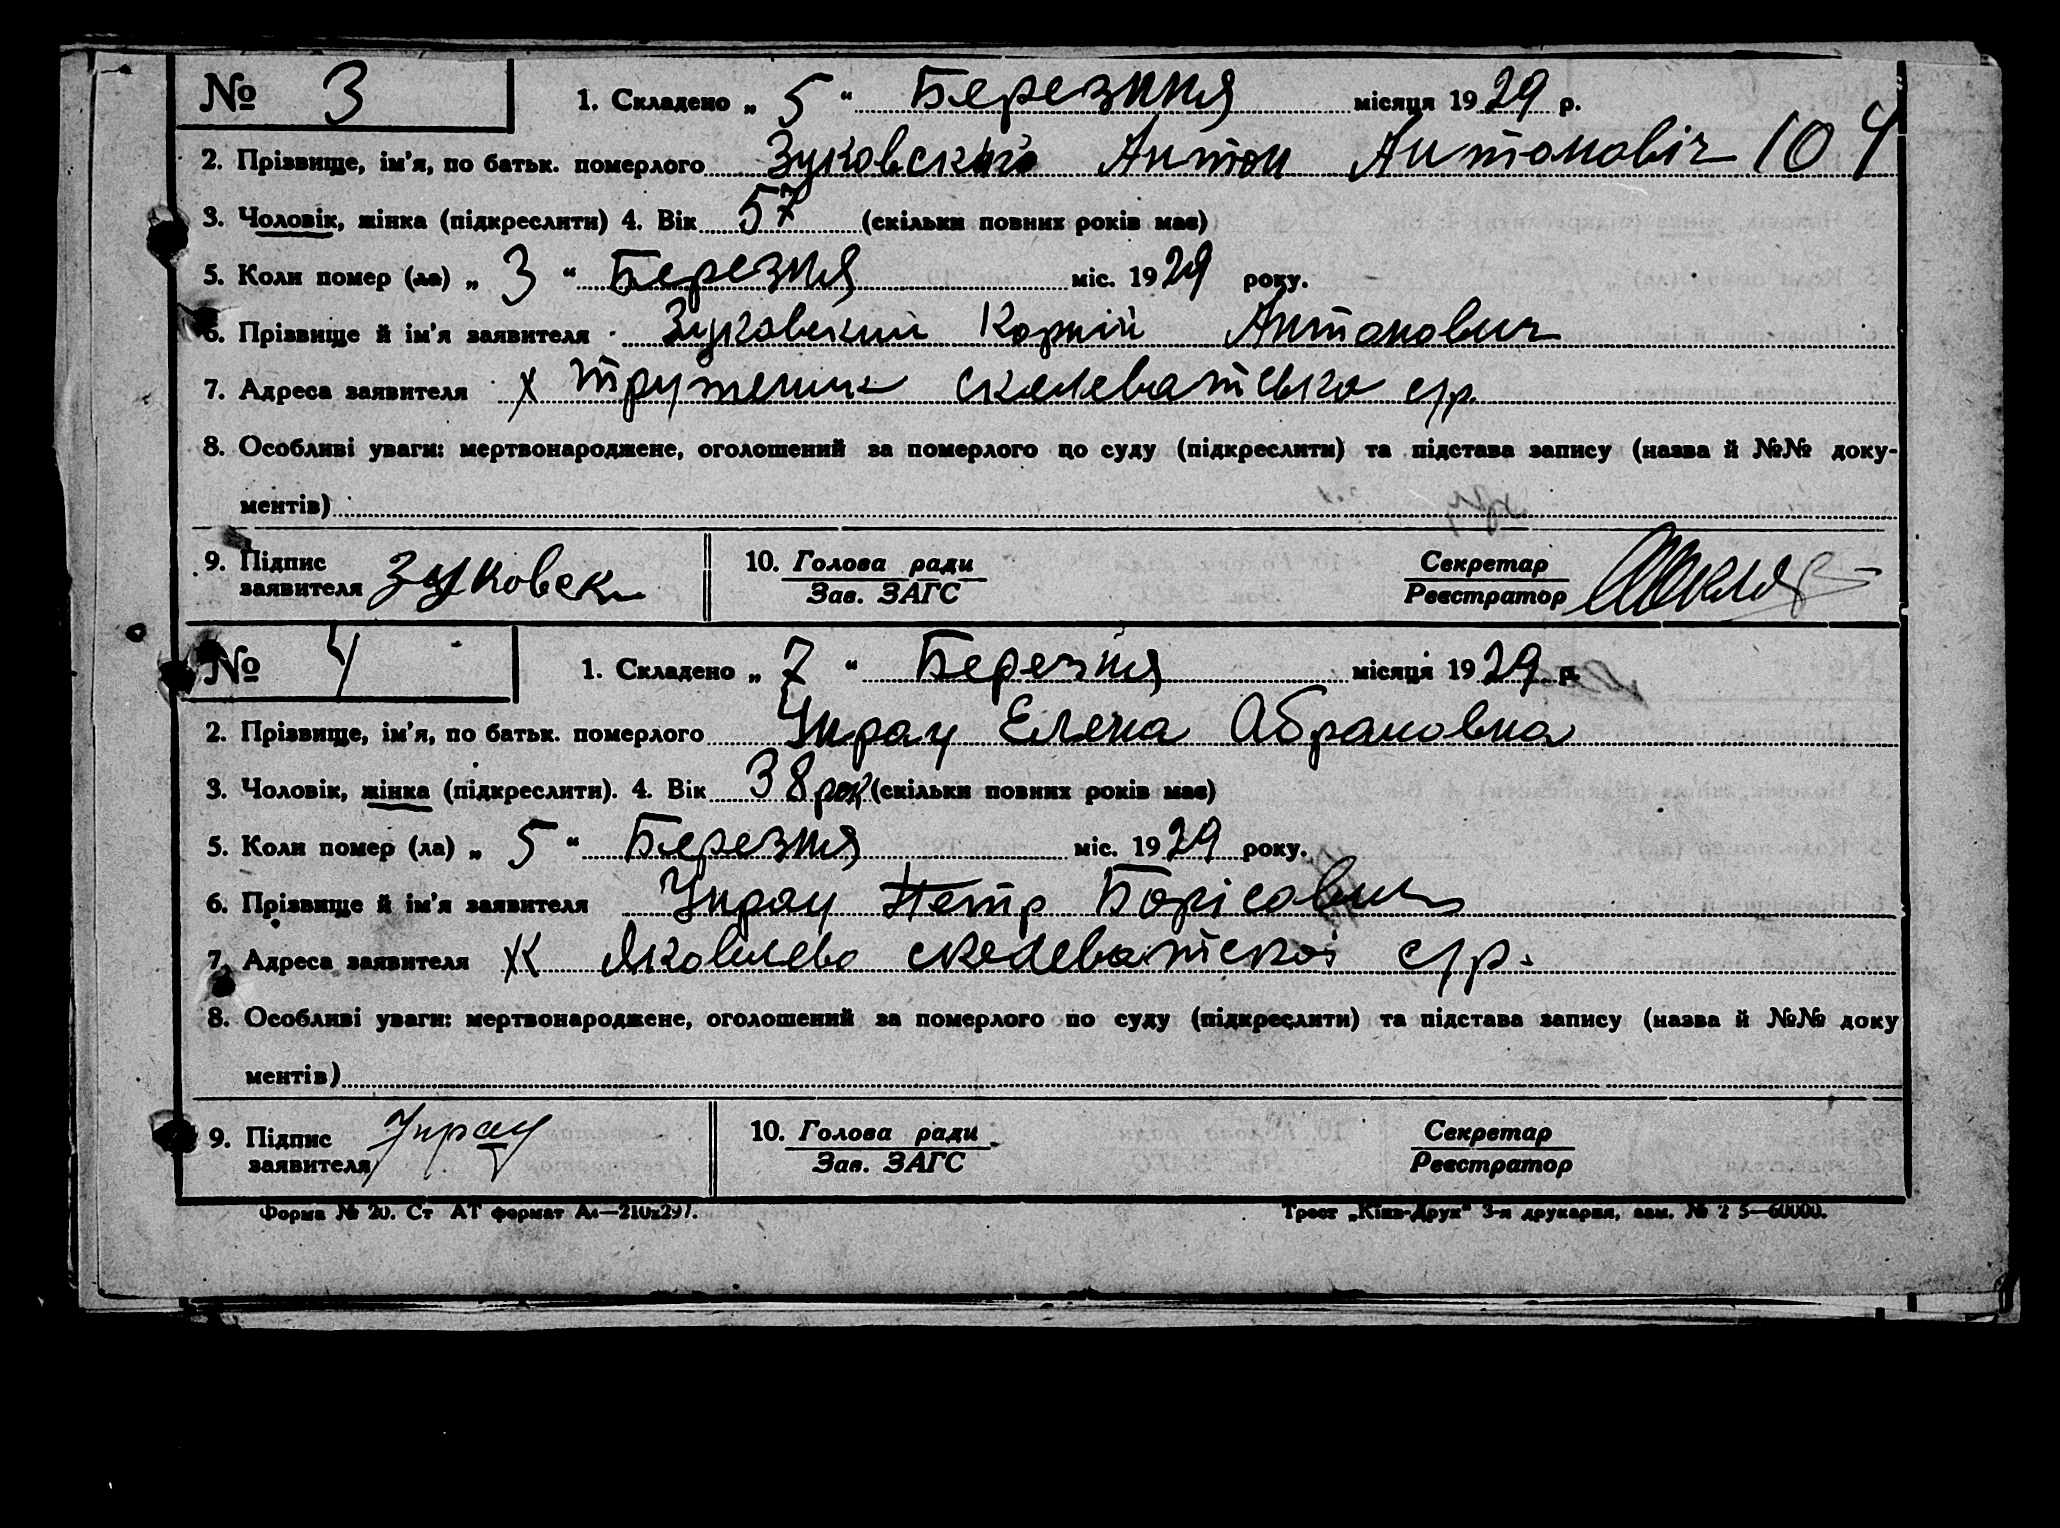 № 3 1. Складено „ 5 “ Березння місяця 1929 р.
2. Прізвище, ім'я, по батьк. померлого Зуковского Антон Антоновіч 104
3. Чоловік, жінка (підкреслити) 4. Вік 57 (скільки повних років має)
5. Коли помер (ла) „ 3 “ Березня міс. 1929 року.
6. Прізвище й ім'я заявителя Зуковский Корній Антонович
7. Адреса заявителя х Труженик скелеватська с/р
8. Особливі уваги: мертвонароджене, оголошений за померлого по суду (підкреслити) та підстава запису (назва й №№ доку-
ментів)
9. Підпис заявителя Зуковск 10. Голова ради Зав. ЗАГС Секретар Реєстратор
№ 4 1. Складено „ 7 “ Березня місяця 1929 р.
2. Прізвище, ім'я, по батьк. померлого Унрау Елена Абрамовна
3. Чоловік, жінка (підкреслити). 4. Вік 38 рок (скільки повних років має)
5. Коли помер (ла) „ 5 “ Березня міс. 1929 року.
6. Прізвище й ім'я заявителя Унрау Петр Борісович
7. Адреса заявителя Яковлево скелеватскої с/р.
8. Особливі уваги: мертвонароджене, оголошений за померлого по суду (підкреслити) та підстава запису (назва й №№ доку
ментів)
9. Підпис заявителя Унрау 10. Голова ради Зав. ЗАГС Секретар Реєстратор
Форма № 20. Ст АТ формат А4—210х297. Трест „Київ-Друк“ 3-я друкарня, зам. № 2 5—60000.